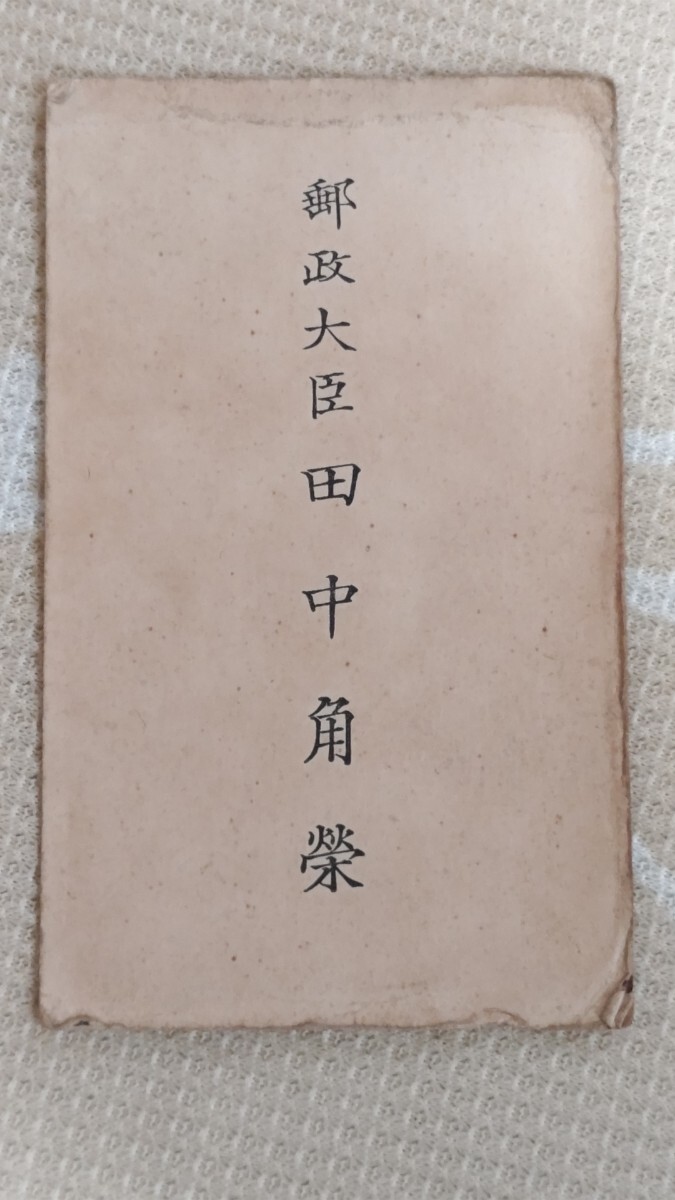 郵政大臣田中角榮